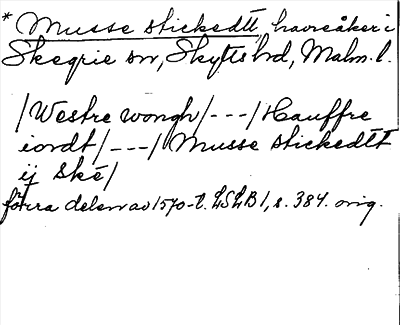 * Musse stickedtt, havreåker i
Skegrie sn, Skytts hd, Malm. l.
/Westre wongh/---/Hauffre
iordt/---/Musse stickedtt
ij Skē/
förra delen av 1570-t. LSLB 1, s. 384. orig.